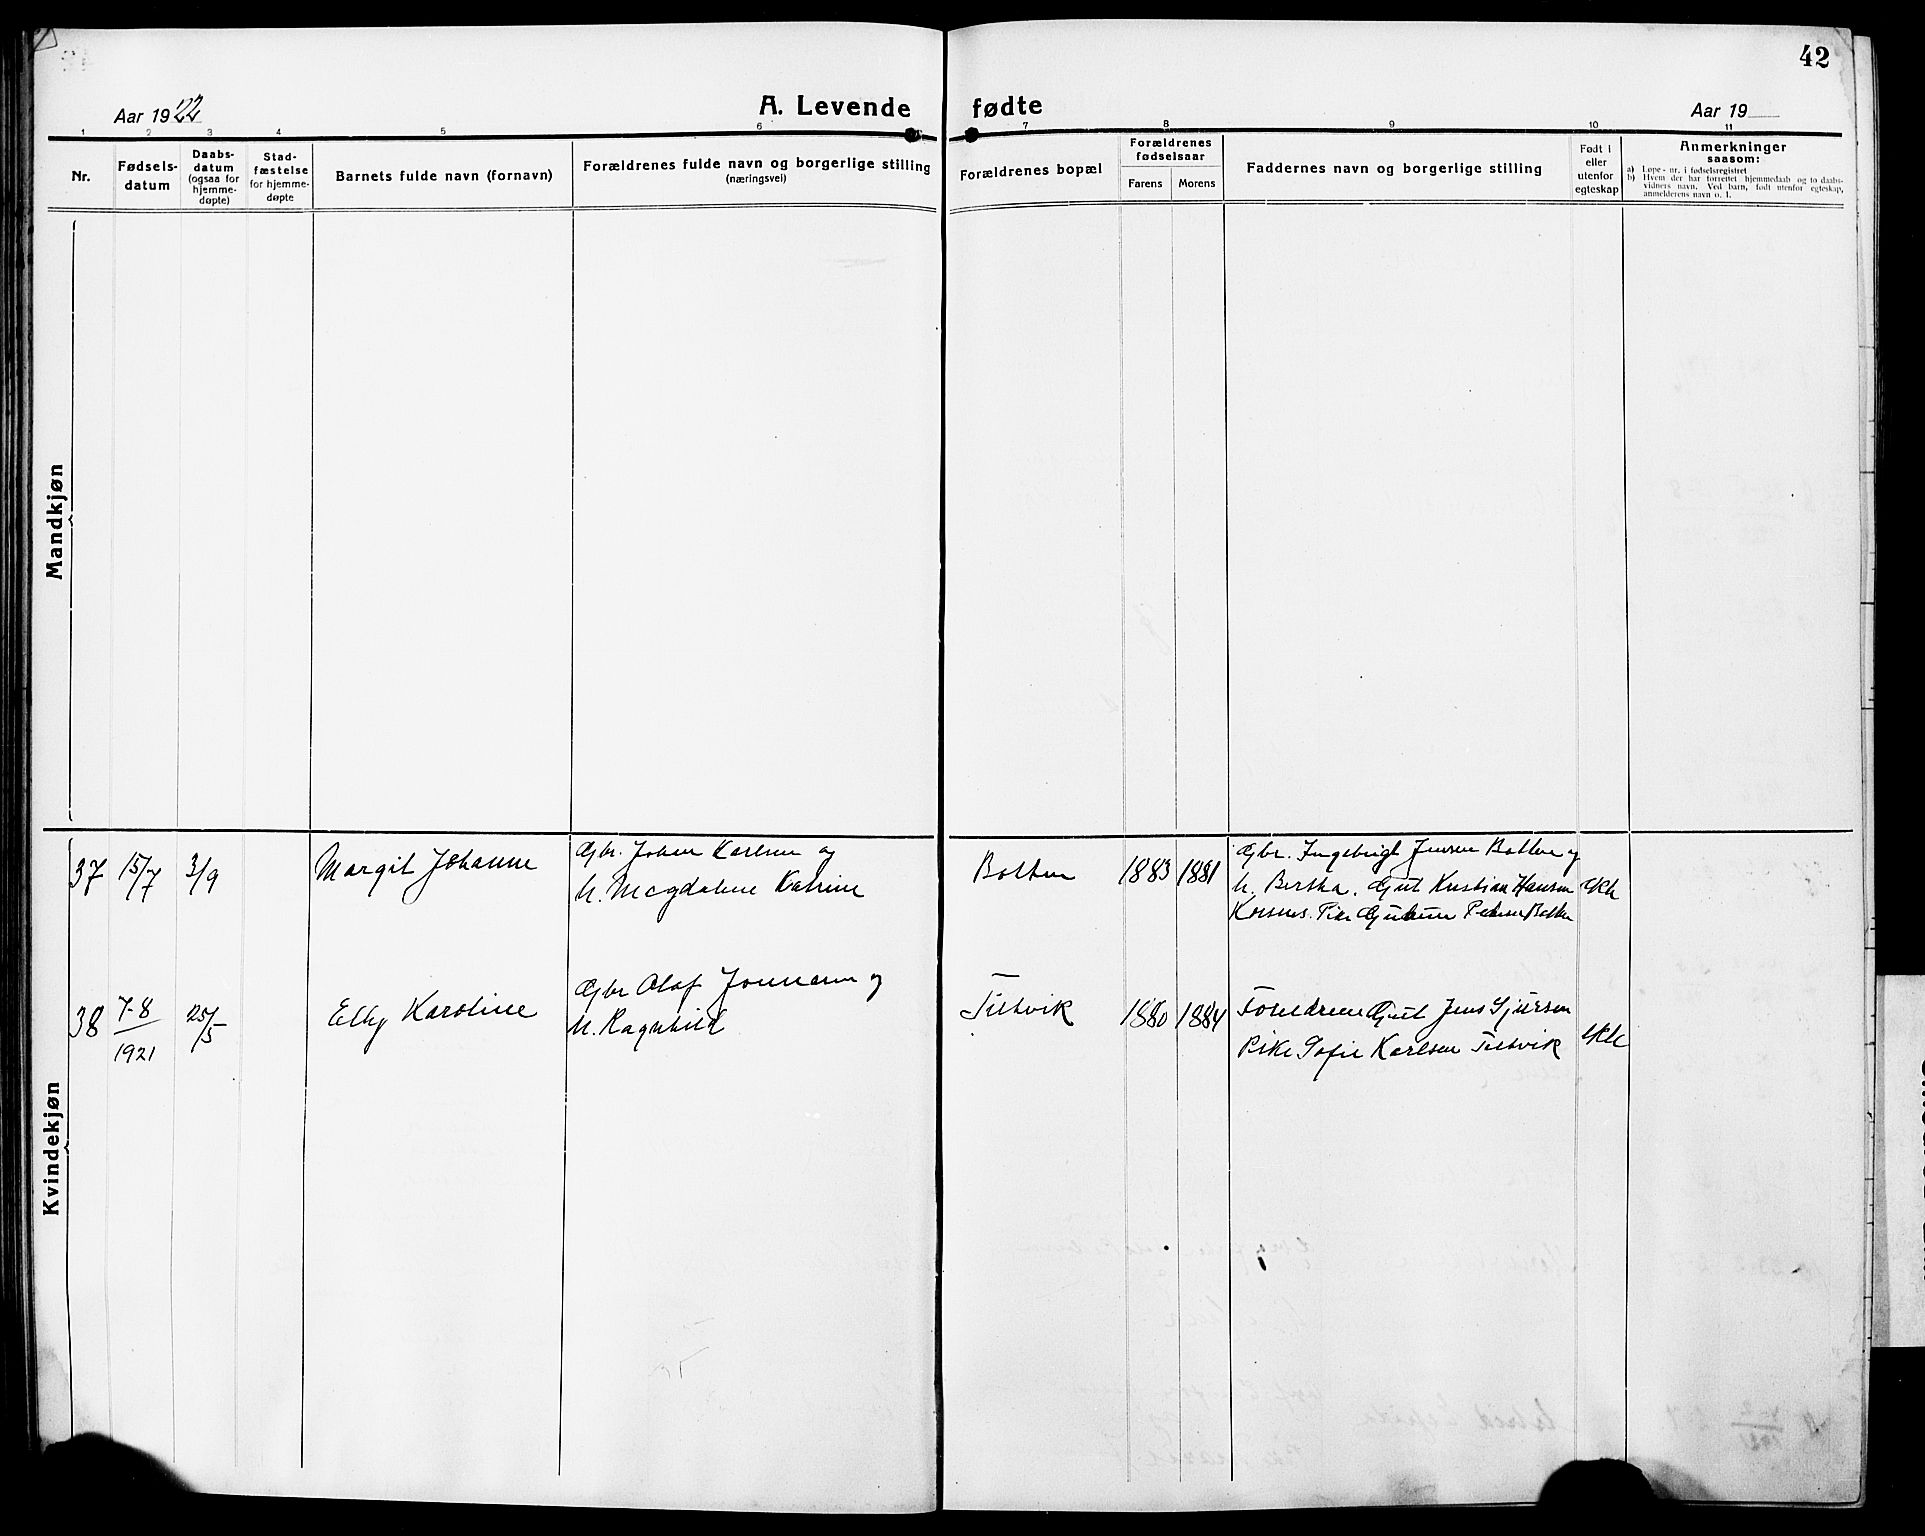 42
Aar 1922
A. Levende fødte
Aar 19
1 2 3 4 5 6 7 8 9 10 11
Nr.
Fødsels-
datum
Daabs-
datum
(ogsaa for
hjemme-
døpte)
Stad-
fæstelse
for hjemme-
døpte
Barnets fulde navn (fornavn)
Forældrenes fulde navn og borgerlige stilling
(næringsvei)
Forældrenes bopæl
Forældrenes
fødselsaar
Farens Morens
Faddernes navn og borgerlige stilling
Født i
eller
utenfor
egteskap
Anmerkninger
saasom:
a) Løpe-nr. i fødselsregistret
b) Hvem der har forrettet hjemmedaab og to daabs-
vidners navn. Ved barn, født utenfor egteskap,
anmelderens navn o. l.
Mandkjøn
Kvindekjøn
37 15/7 3/9 Margit Johanne
Gbr. Johan Karlsen og
h. Magdalene Katrine
Botten 1883 1881
Gbr. Ingebrigt Jensen Botten og
h. Bertha. Gut Kristian Hansen
Korsnes. Pike Petersen Botten
Ekte
38 7-8
1921
25/5
Elly Karoline
Gbr Olaf Jonnasen og
h. Ragnhild
Tilthvik 1880 1884
Foreldrene Gut Jens Sjursen
Pike Sofie Karlsen Tiltvik
Ekte